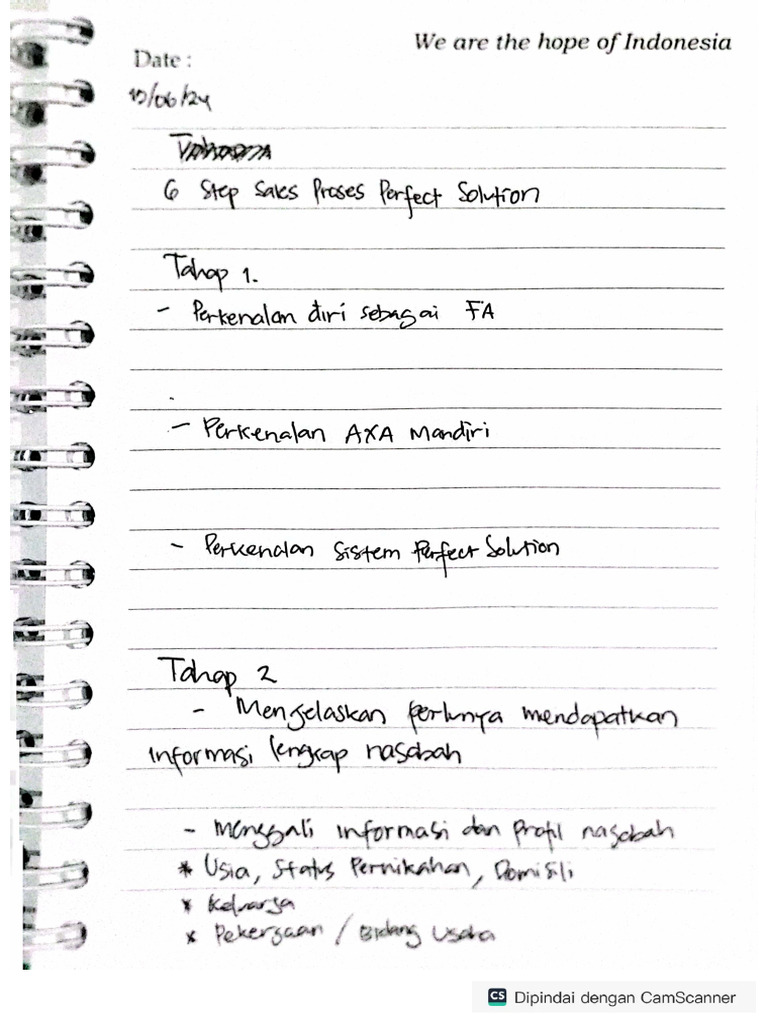 We are the hope of Indonesia
Date :
10/06/24
6 Step Sales Proses Perfect Solution
Tahap 1.
- Perkenalan diri sebagai FA
- Perkenalan AXA Mandiri
- Perkenalan Sistem Perfect Solution
Tahap 2
- Menjelaskan perlunya mendapatkan
informasi lengkap nasabah
- Menggali informasi dan Profil nasabah
* Usia, Status Pernikahan, Domisili
* Keluarga
* Pekerjaan / Bidang Usaha
CS Dipindai dengan CamScanner